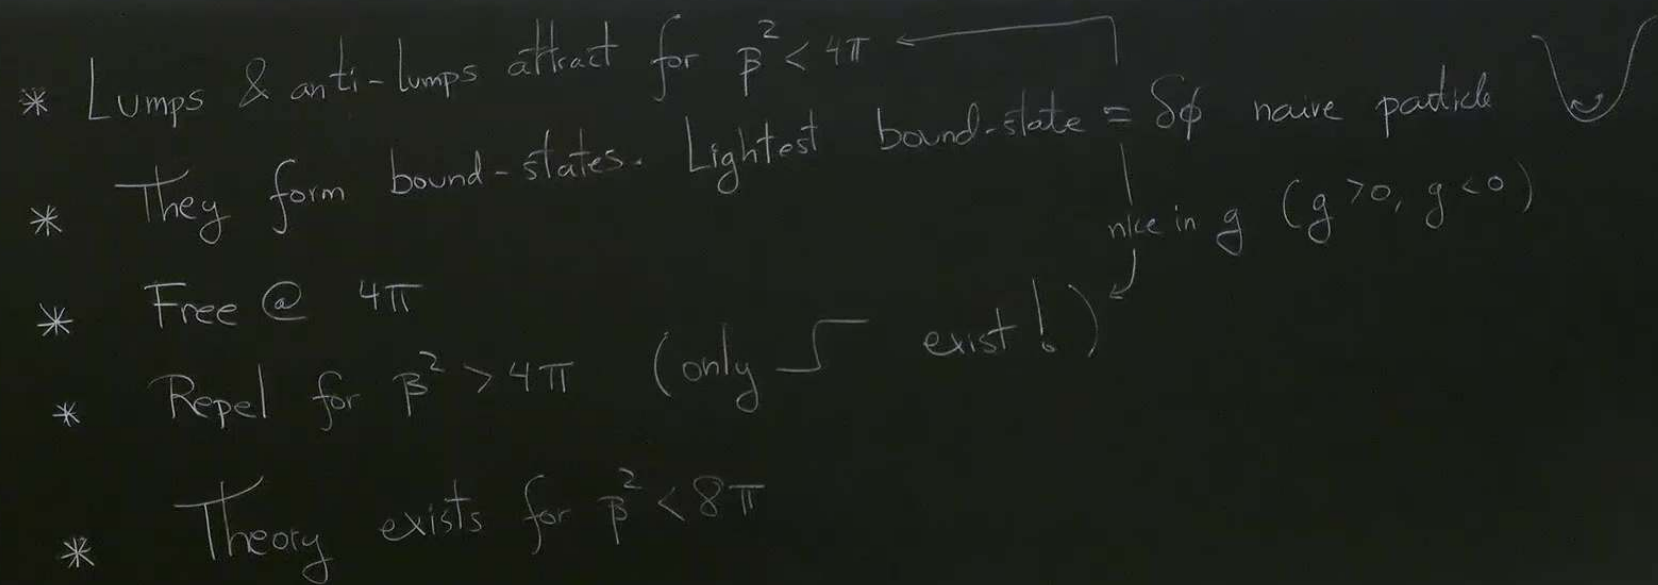 * Lumps & anti-lumps attract for β² < 4π
* They form bound-states. Lightest bound-state = δφ naive particle
nice in g (g>0, g<0)
* Free @ 4π
* Repel for β² > 4π (only exist!)
* Theory exists for β² < 8π